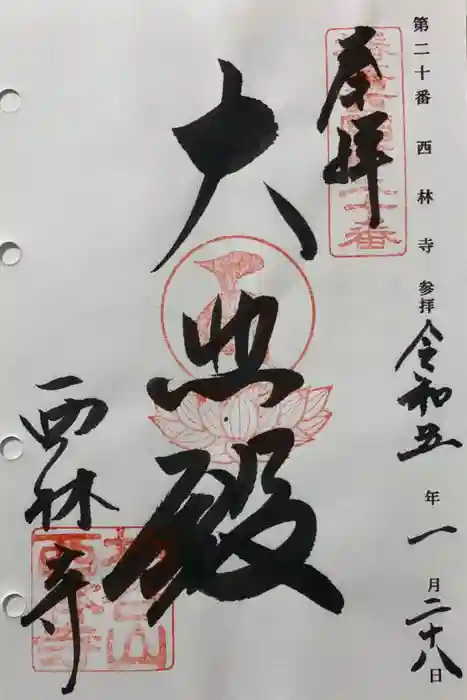 第二十番 西林寺 参拝 令和五年一月二十八日
奉拝
大悲殿
西林寺
西林寺